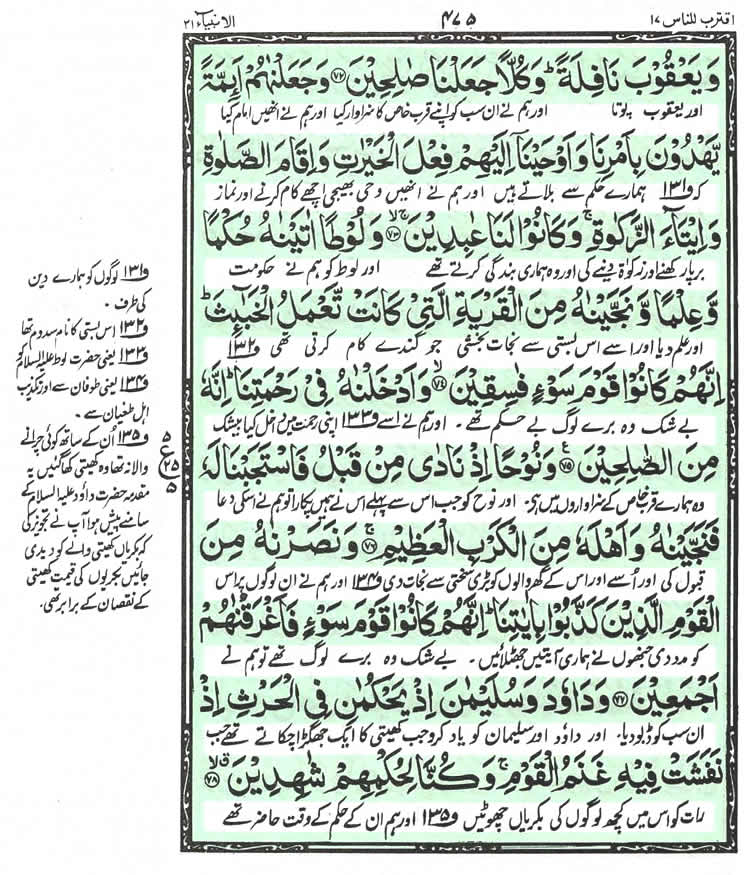 اقترب للناس ١٧
٤٧٥
الانبیآء ٢١
وَيَعْقُوْبَ نَافِلَةً ؕ وَكُلًّا جَعَلْنَا صٰلِحِيْنَ ﴿۷۲﴾ وَجَعَلْنٰهُمْ اَىِٕمَّةً
اور یعقوب پوتا اور ہم نے ان سب کو اپنے قرب خاص کا سزاوار کیا اور ہم نے انھیں امام کیا
يَّهْدُوْنَ بِاَمْرِنَا وَاَوْحَيْنَاۤ اِلَيْهِمْ فِعْلَ الْخَيْرٰتِ وَاِقَامَ الصَّلٰوةِ
کہ و۱۳۱ ہمارے حکم سے بلاتے ہیں اور ہم نے انھیں وحی بھیجی اچھے کام کرنے اور نماز
وَاِيْتَآءَ الزَّكٰوةِ ۚ وَكَانُوْا لَنَا عٰبِدِيْنَ ﴿۷۳﴾ وَلُوْطًا اٰتَيْنٰهُ حُكْمًا
برپا رکھنے اور زکوٰۃ دینے کی اور وہ ہماری بندگی کرتے تھے اور لوط کو ہم نے حکومت
وَّعِلْمًا وَّنَجَّيْنٰهُ مِنَ الْقَرْيَةِ الَّتِيْ كَانَتْ تَّعْمَلُ الْخَبٰٓىِٕثَ ؕ
اور علم دیا اور اسے اس بستی سے نجات بخشی جو گندے کام کرتی تھی و۱۳۲
اِنَّهُمْ كَانُوْا قَوْمَ سَوْءٍ فٰسِقِيْنَ ﴿۷۴﴾ وَاَدْخَلْنٰهُ فِيْ رَحْمَتِنَا ؕ اِنَّهٗ
بے شک وہ برے لوگ بے حکم تھے۔ اور ہم نے اسے و۱۳۳ اپنی رحمت میں داخل کیا بیشک
مِنَ الصّٰلِحِيْنَ ﴿۷۵﴾ وَنُوْحًا اِذْ نَادٰى مِنْ قَبْلُ فَاسْتَجَبْنَا لَهٗ
وہ ہمارے قرب خاص کے سزاواروں میں ہے۔ اور نوح کو جب اس سے پہلے اس نے ہمیں پکارا تو ہم نے اسکی دعا
فَنَجَّيْنٰهُ وَاَهْلَهٗ مِنَ الْكَرْبِ الْعَظِيْمِ ﴿۷۶﴾ وَنَصَرْنٰهُ مِنَ
قبول کی اور اُسے اور اس کے گھر والوں کو بڑی سختی سے نجات دی و۱۳۴ اور ہم نے ان لوگوں پر اس
الْقَوْمِ الَّذِيْنَ كَذَّبُوْا بِاٰيٰتِنَا ؕ اِنَّهُمْ كَانُوْا قَوْمَ سَوْءٍ فَاَغْرَقْنٰهُمْ
کو مدد دی جنھوں نے ہماری آیتیں جھٹلائیں۔ بے شک وہ برے لوگ تھے تو ہم نے
اَجْمَعِيْنَ ﴿۷۷﴾ وَدَاوٗدَ وَسُلَيْمٰنَ اِذْ يَحْكُمٰنِ فِي الْحَرْثِ اِذْ
ان سب کو ڈبو دیا۔ اور داؤد اور سلیمان کو یاد کرو جب کھیتی کا ایک جھگڑا چکاتے تھے جب
نَفَشَتْ فِيْهِ غَنَمُ الْقَوْمِ ۚ وَكُنَّا لِحُكْمِهِمْ شٰهِدِيْنَ ﴿۷۸﴾
رات کو اس میں کچھ لوگوں کی بکریاں چھوٹیں و۱۳۵ اور ہم ان کے حکم کے وقت حاضر تھے
و۱۳۱ لوگوں کو ہمارے دین
کی طرف۔
و۱۳۲ اس بستی کا نام سدوم تھا
و۱۳۳ یعنی حضرت لوط علیہ السلام کو
و۱۳۴ یعنی طوفان سے اور تکذیب
اہل طغیان سے۔
و۱۳۵ اُن کے ساتھ کوئی چرانے
والا نہ تھا وہ کھیتی کھا گئیں یہ
مقدمہ حضرت داؤد علیہ السلام کے
سامنے پیش ہوا آپ نے تجویز کی
کہ بکریاں کھیتی والے کو دیدی
جائیں بکریوں کی قیمت کھیتی
کے نقصان کے برابر تھی۔
۵
ع
25
۵